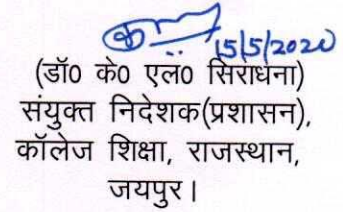 15/5/2020
(डॉ० के० एल० सिराधना)
संयुक्त निदेशक(प्रशासन),
कॉलेज शिक्षा, राजस्थान,
जयपुर।